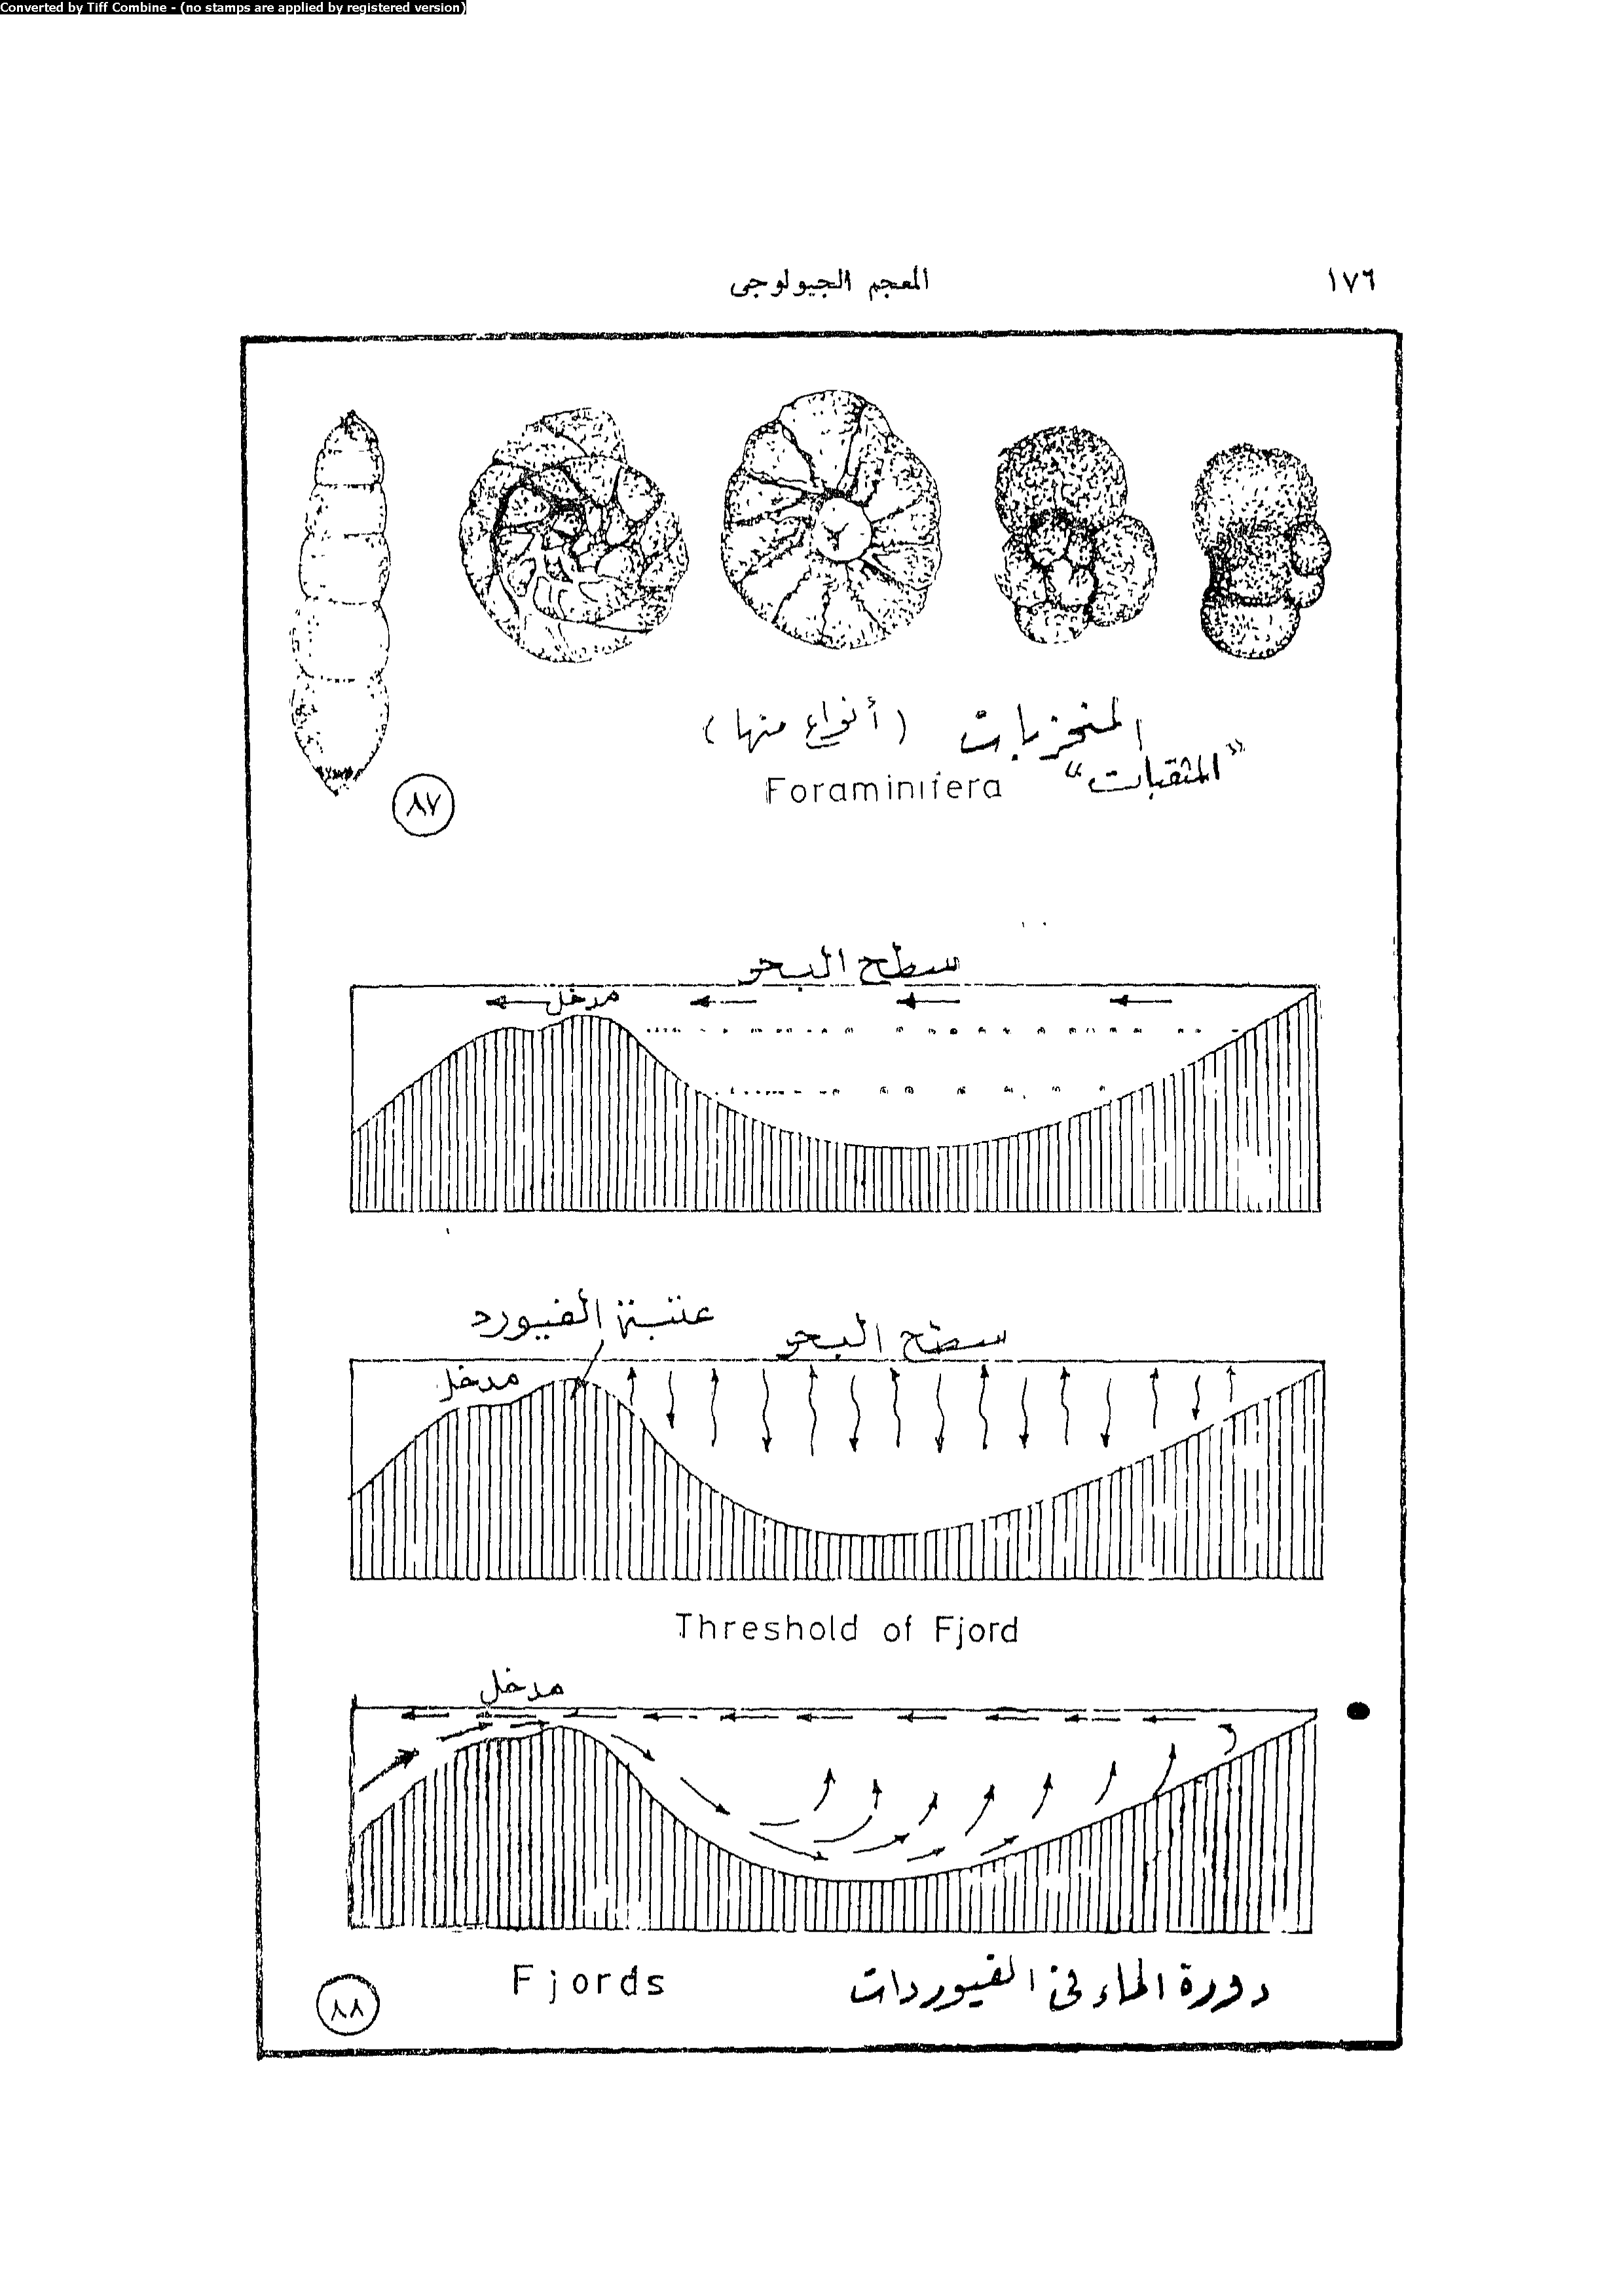 Converted by Tiff Combine - (no stamps are applied by registered version)
١٧٦
المعجم الجيولوجى
المنخربات (أنواع منها)
"المثقبات"
Foraminifera
٨٧
سطح البحر
مدخل
عتبة الفيورد
سطح البحر
مدخل
Threshold of Fjord
مدخل
دورة الماء فى الفيوردات
Fjords
٨٨